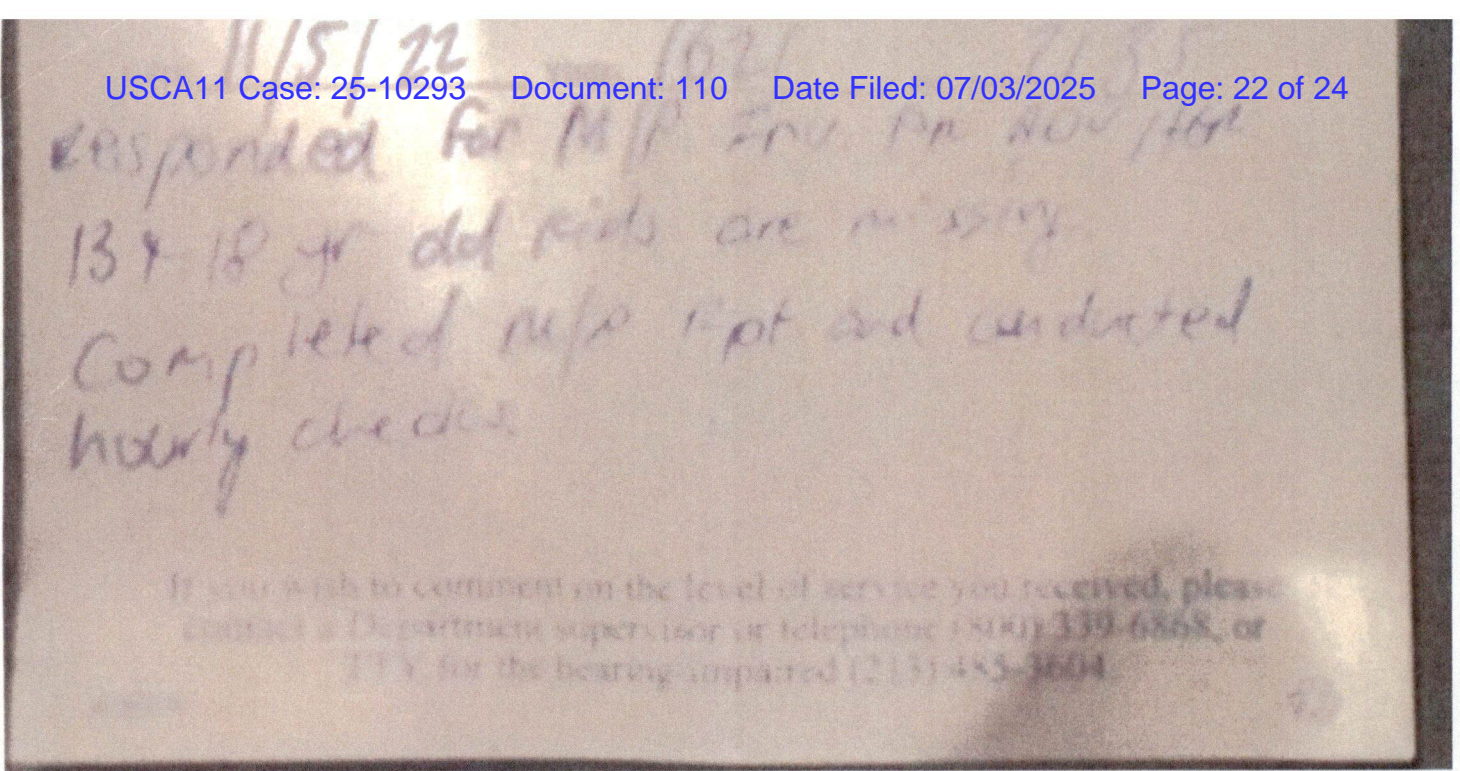 11/5/22 1621
USCA11 Case: 25-10293 Document: 110 Date Filed: 07/03/2025 Page: 22 of 24
responded for M/P Inv.
13 & 18 yr old kids are missing
Completed m/p rpt and conducted
hourly checks.
If you wish to comment on the level of service you received, please
contact a Department supervisor or telephone (800) 339-6868, or
TTY for the hearing impaired (213) 485-3604.